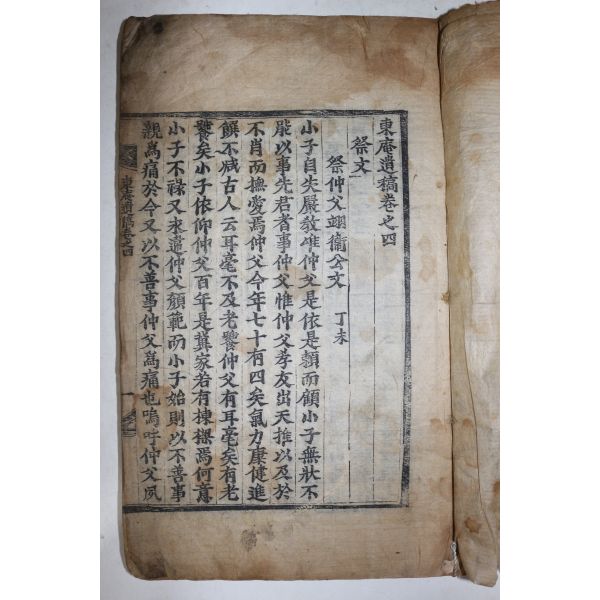 東庵遺稿卷之四
祭文
祭仲父翊衛公文 丁未
小子自失嚴敎唯仲父是依是賴而顧小子無狀不
能以事先君者事仲父惟仲父孝友出天推以及於
不肖而撫愛焉仲父今年七十有四矣氣力康健進
饌不减古人云耳毫不及老饕仲父有耳毫矣有老
饕矣小子依仰仲父百年是冀家若有棟樑焉何意
小子不祿又永違仲父顔範而小子始則以不善事
親爲痛於今又以不善事仲父爲痛也嗚呼仲父夙
東庵遺稿卷之四
一